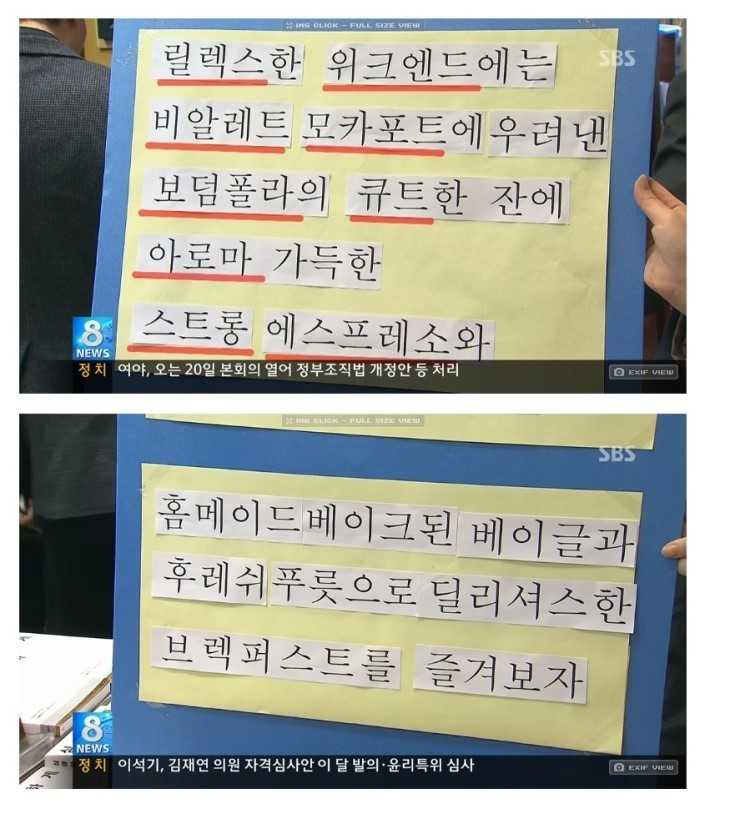 IMG CLICK - FULL SIZE VIEW
SBS
릴렉스한 위크엔드에는
비알레트 모카포트에 우려낸
보덤폴라의 큐트한 잔에
아로마 가득한
스트롱 에스프레소와
8
NEWS
정치 여야, 오는 20일 본회의 열어 정부조직법 개정안 등 처리
EXIF VIEW
IMG CLICK - FULL SIZE VIEW
SBS
홈메이드 베이크된 베이글과
후레쉬 푸릇으로 딜리셔스한
브렉퍼스트를 즐겨보자
8
NEWS
정치 이석기, 김재연 의원 자격심사안 이 달 발의·윤리특위 심사
EXIF VIEW